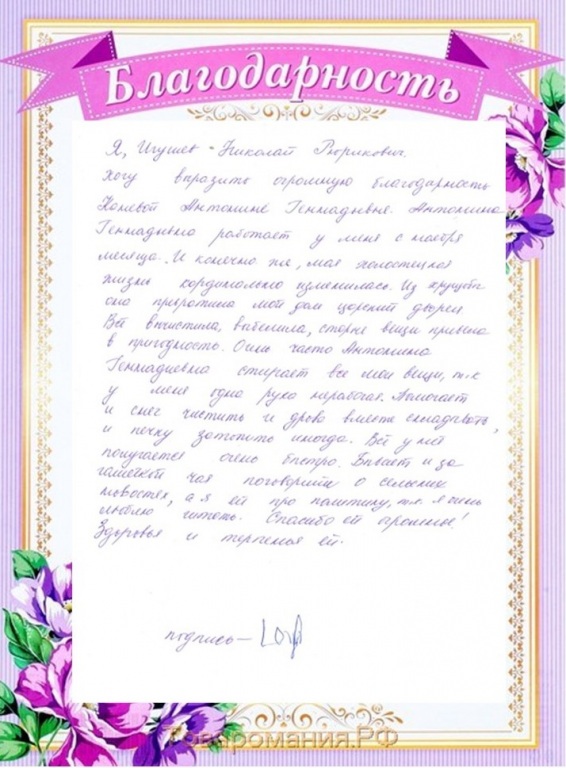 Благодарность
Я, Игушев Николай Рюрикович.
Хочу выразить огромную благодарность
Антонине Геннадьевне. Антонина
Геннадьевна работает у меня с ноября
месяца. И конечно же, моя холостецкая
жизнь кординально изменилась. Из хрущёвы
она превратила мой дом царский дворец
Всё вычистила, выбелила, старые вещи привела
в пригодность. Очень часто Антонина
Геннадиевна стирает все мои вещи, т.к
у меня одна рука нерабочая. Помогает
и снег чистить и дрова вместе складывать,
и печку затопить иногда. Всё у неё
получается очень быстро. Бывает и за
чашечкой чая поговорит о сельских
новостях, а я ей про политику, т.к. я очень
люблю читать. Спасибо ей огромное!
Здоровья и терпенья ей.
подпись –
Товаромания.РФ